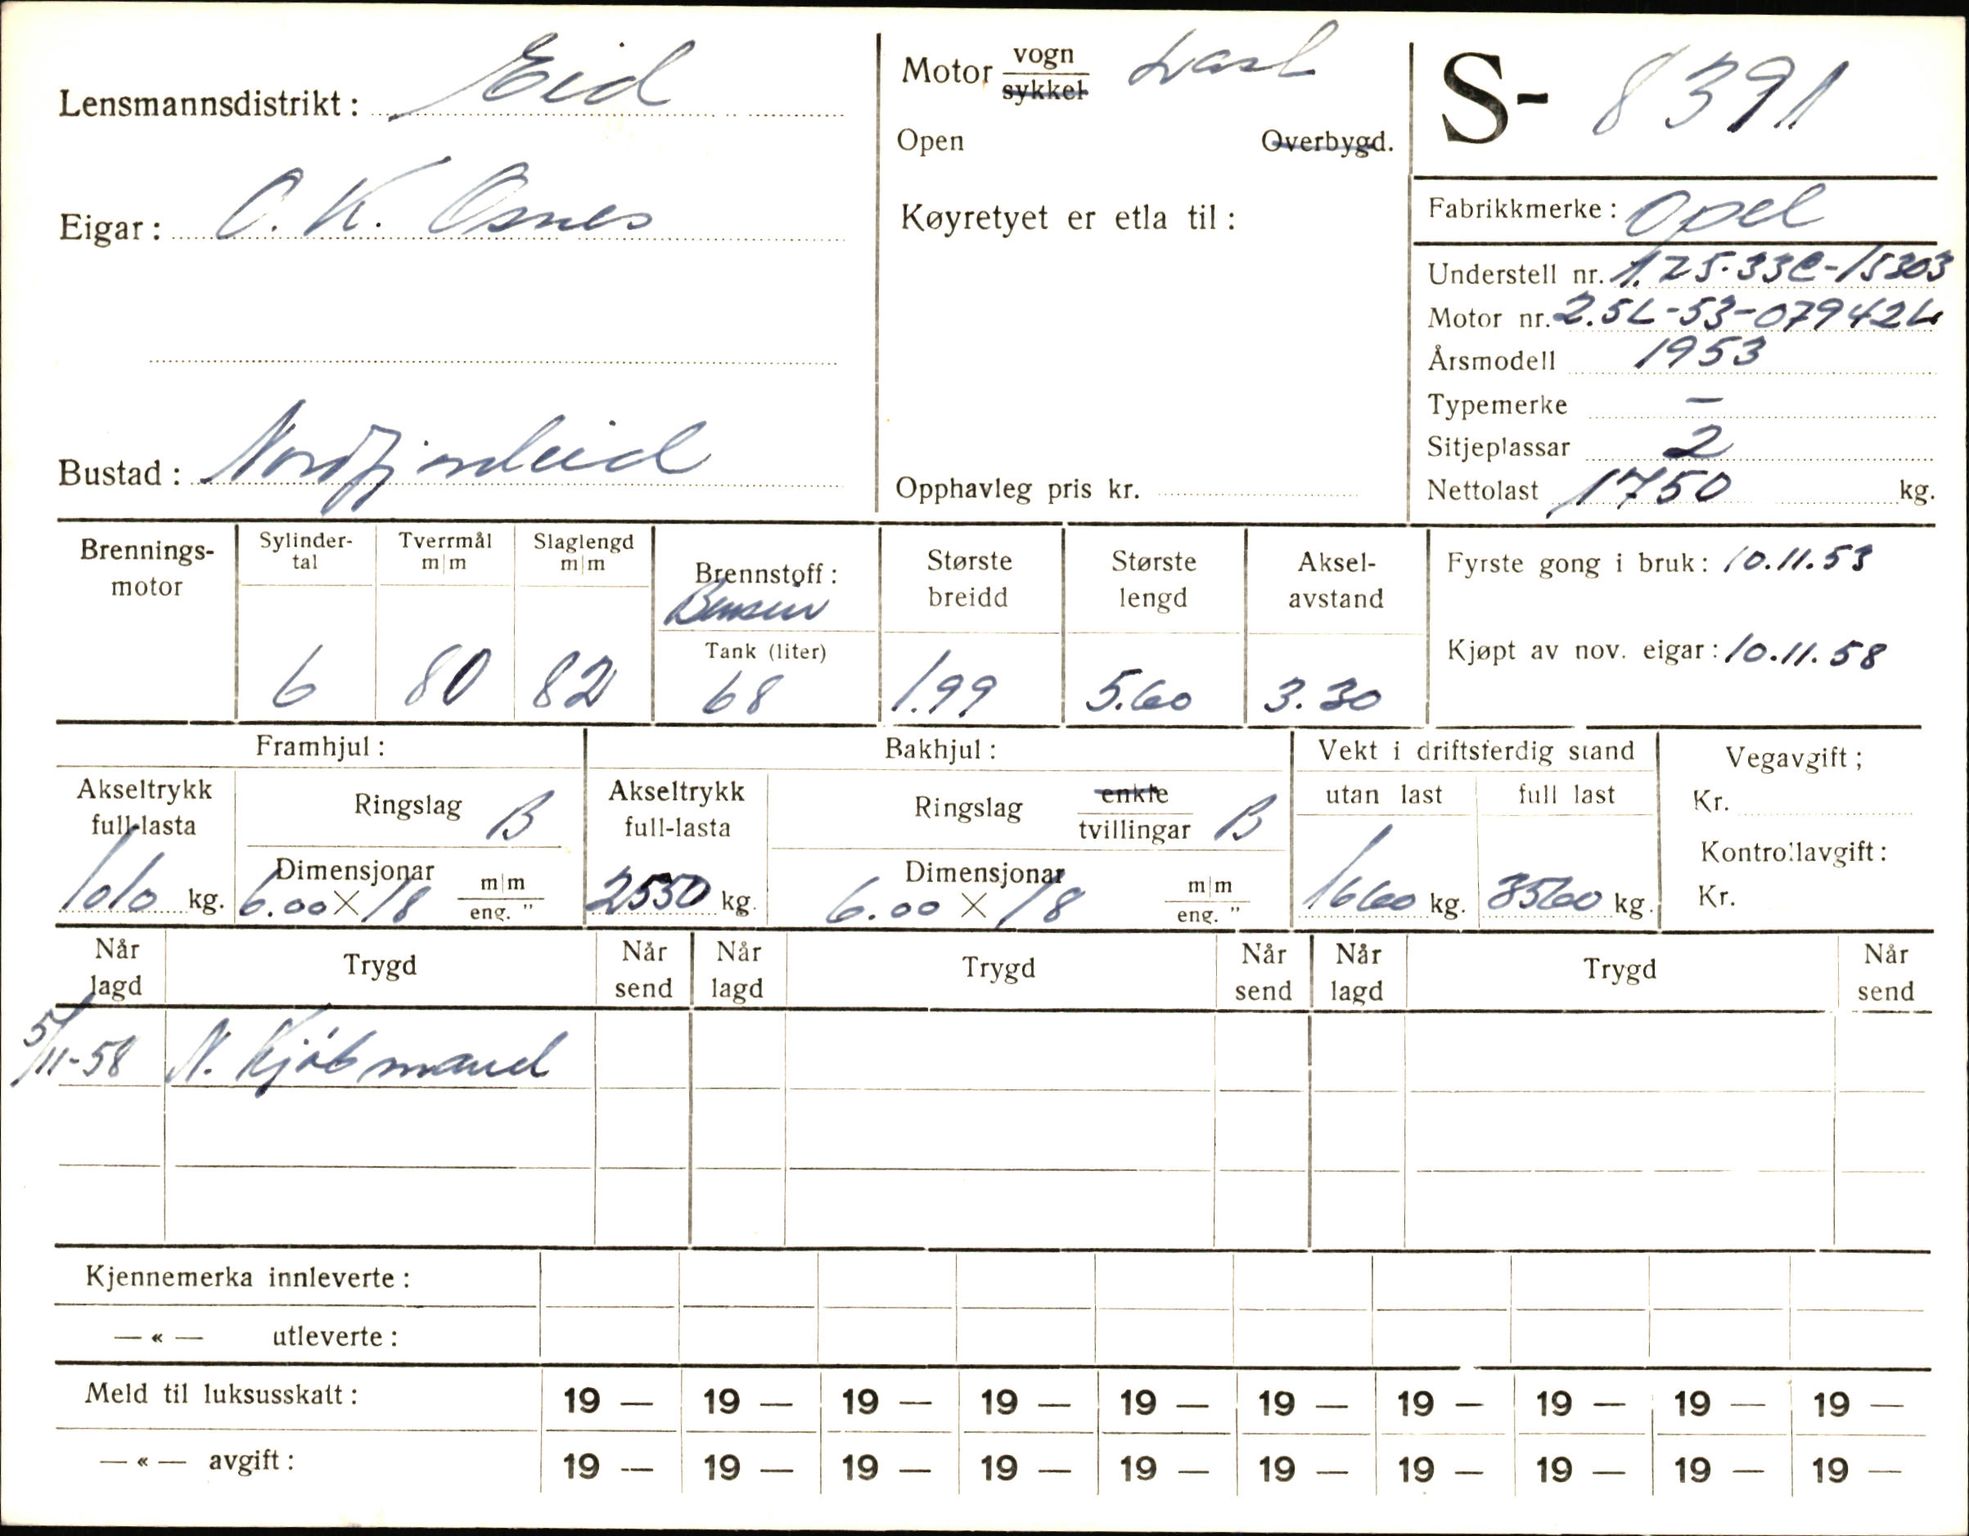 Lensmannsdistrikt: Eid
Eigar: O. K. Osnes
Bustad: Nordfjordeid
Motor vogn Last
sykkel
Open Overbygd.
Køyretyet er etla til:
Opphavleg pris kr.
S- 8391
Fabrikkmerke: Opel
Understell nr. 1.75-33C-15303
Motor nr. 2.5L-53-07942L
Årsmodell 1953
Typemerke —
Sitjeplassar 2
Nettolast 1750 kg.
Brennings-
motor
Sylinder-
tal
6
Tverrmål
m|m
80
Slaglengd
m|m
82
Brennstoff:
Bensin
Tank (liter)
68
Største
breidd
1.99
Største
lengd
5.60
Aksel-
avstand
3.30
Fyrste gong i bruk: 10.11.53
Kjøpt av nov. eigar: 10.11.58
Framhjul:
Akseltrykk
full-lasta
1010 kg.
Ringslag B
Dimensjonar
6.00 X 18 m|m
eng. "
Bakhjul:
Akseltrykk
full-lasta
2550 kg.
Ringslag enkle
tvillingar B
Dimensjonar
6.00 X 18 m|m
eng. "
Vekt i driftsferdig stand
utan last full last
1660 kg. 3560 kg.
Vegavgift;
Kr.
Kontrollavgift:
Kr.
Når
lagd
Trygd
Når
send
Når
lagd
Trygd
Når
send
Når
lagd
Trygd
Når
send
5/11-58 N. Kjøbmand
Kjennemerka innleverte:
— « — utleverte:
Meld til luksusskatt: 19 — 19 — 19 — 19 — 19 — 19 — 19 — 19 — 19 — 19 —
— « — avgift: 19 — 19 — 19 — 19 — 19 — 19 — 19 — 19 — 19 — 19 —